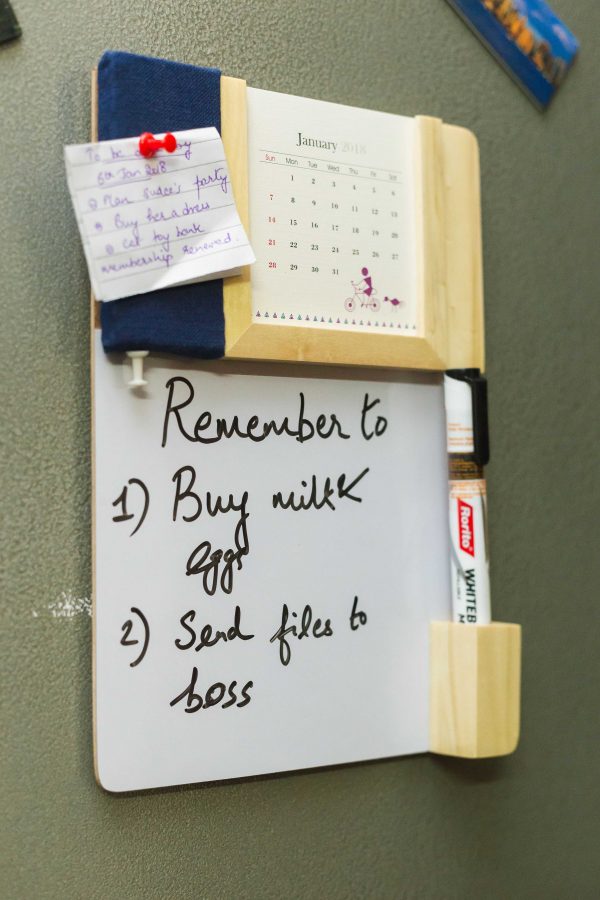 January 2018
Sun Mon Tue Wed Thu Fri Sat
1 2 3 4 5 6
7 8 9 10 11 12 13
14 15 16 17 18 19 20
21 22 23 24 25 26 27
28 29 30 31
To be by
6th Jan 2018
Plan party
Buy her a dress
Get toy bank
membership renewed.
Remember to
1) Buy milk
eggs
2) Send files to
boss
Rorito
WHITEB